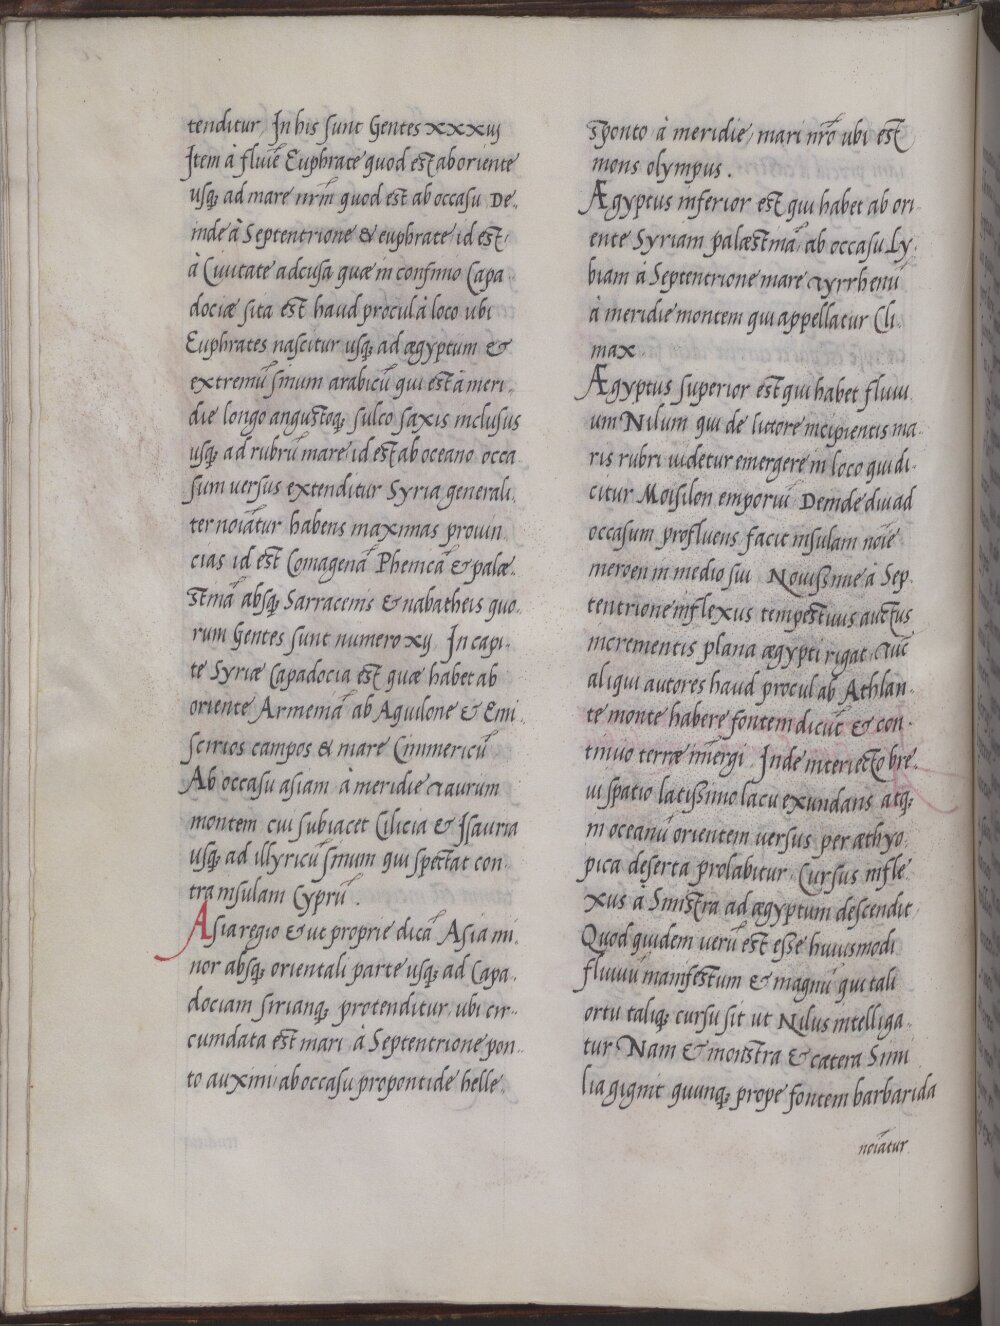 tenditur, In his sunt Gentes xxxuij
Item à fluuiē Euphrate quod est ab oriente
usq; ad mare nrm̄ quod est ab occasu De-
inde à Septentrione & euphrate id est
à Ciuitate adcusa quæ in confinio Capa
dociæ sita est haud procul à loco ubi
Euphrates nascitur usq; ad ægyptum &
extremū sinum arabicū qui est à meri-
die longo angustoq; sulco saxis inclusus
usq; ad rubrū mare id est ab oceano occa
sum uersus extenditur Syria generali
ter noīatur habens maximas prouin
cias id est Comagenā Phenicā & palæ-
stinā absq; Sarracenis & nabatheis quo
rum Gentes sunt numero xij In capi-
te Syriæ Capadocia est quæ habet ab
oriente Armeniā ab Aquilone & Emi
scirios campos & mare Cimmericū
Ab occasu asiam à meridie Taurum
montem cui subiacet Cilicia & Isauria
usq; ad illyricū sinum qui spectat con-
tra insulam Cyprū.
Asia regio & ut proprie dicā Asia mi-
nor absq; orientali parte usq; ad Capa-
dociam sirianq; protenditur ubi cir-
cumdata est mari à Septentrione pon-
to auximi ab occasu propontide helle
sponto à meridie, mari nrō ubi est
mons olympus.
Ægyptus inferior est qui habet ab ori
ente Syriam palæstinā, ab occasu Ly-
biam à Septentrione mare Tyrrhenū
à meridie montem qui appellatur Cli-
max
Ægyptus superior est qui habet fluui
um Nilum qui de littore incipientis ma-
ris rubri uidetur emergere in loco qui di-
citur Moisilon emporiū Deinde diu ad
occasum profluens facit insulam noīe
meroen in medio sui Nouissime à Sep
tentrione inflexus tempestiuus auctus
incrementis plana ægypti rigat, Tūc
aliqui autores haud procul ab Athlan-
te monte habere fontem dicūt & con-
tinuo terræ īmergi Inde interiecto bre-
ui spatio latissimo lacu exundans atq;
in oceanū orientem uersus per æthyo
pica deserta prolabitur, Cursus infle
xus à Sinistra ad ægyptum descendit,
Quod quidem uerū est esse huiusmodi
fluuiū manifestum & magnū qui tali
ortu taliq; cursu sit ut Nilus intelliga-
tur, Nam & monstra & cætera Simi
lia gignit quunq; prope fontem barbari da
noīatur